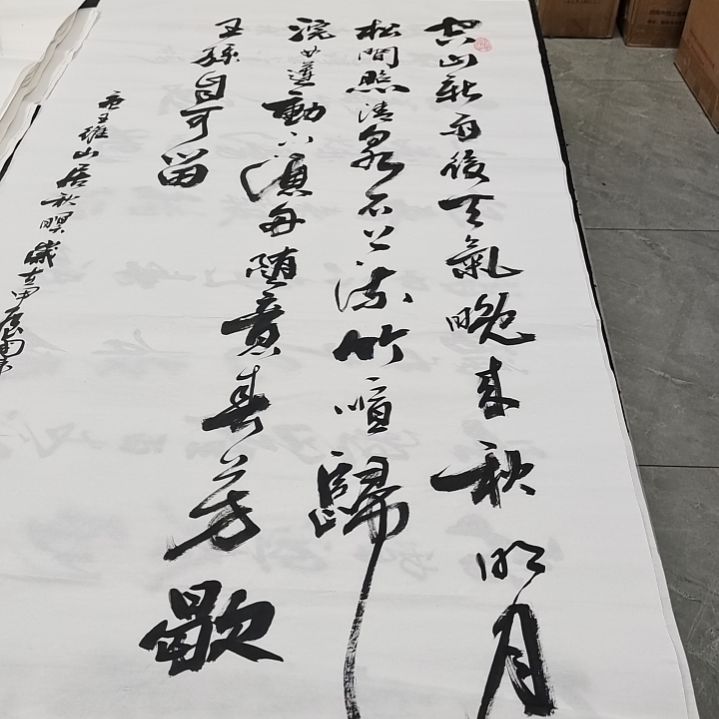 空山新雨後天氣晚来秋明月
松間照清泉石上流竹喧歸
浣女蓮動下漁舟随意春芳歇
王孫自可留
唐王維山居秋暝歲在甲辰